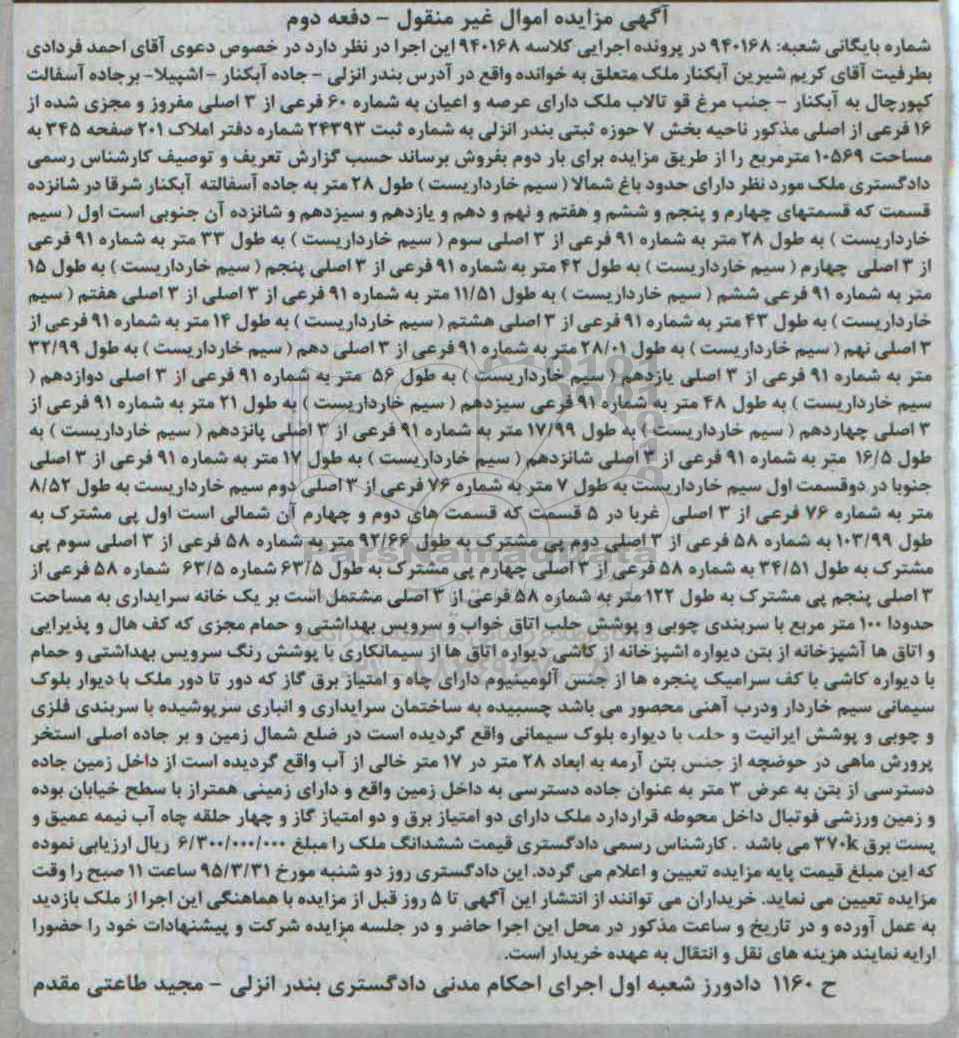 آگهی مزایده اموال غیر منقول - دفعه دوم
شماره بایگانی شعبه: ۹۴۰۱۶۸ در پرونده اجرایی کلاسه ۹۴۰۱۶۸ این اجرا در نظر دارد در خصوص دعوی آقای احمد فردادی
بطرفیت آقای کریم شیرین آبکنار ملک متعلق به خوانده واقع در آدرس بندر انزلی - جاده آبکنار - اشپیلا- بر جاده آسفالت
کپورچال به آبکنار - جنب مرغ قو تالاب ملک دارای عرصه و اعیان به شماره ۶۰ فرعی از ۳ اصلی مفروز و مجزی شده از
۱۶ فرعی از اصلی مذکور ناحیه بخش ۷ حوزه ثبتی بندر انزلی به شماره ثبت ۲۴۳۹۳ شماره دفتر املاک ۲۰۱ صفحه ۳۴۵ به
مساحت ۱۰۵۶۹ مترمربع را از طریق مزایده برای بار دوم بفروش برساند حسب گزارش تعریف و توصیف کارشناس رسمی
دادگستری ملک مورد نظر دارای حدود باغ شمالا ( سیم خارداریست ) طول ۲۸ متر به جاده آسفالته آبکنار شرقا در شانزده
قسمت که قسمتهای چهارم و پنجم و ششم و هفتم و نهم و دهم و یازدهم و سیزدهم و شانزده آن جنوبی است اول ( سیم
خارداریست ) به طول ۲۸ متر به شماره ۹۱ فرعی از ۳ اصلی سوم ( سیم خارداریست ) به طول ۳۳ متر به شماره ۹۱ فرعی
از ۳ اصلی چهارم ( سیم خارداریست ) به طول ۴۲ متر به شماره ۹۱ فرعی از ۳ اصلی پنجم ( سیم خارداریست ) به طول ۱۵
متر به شماره ۹۱ فرعی ششم ( سیم خارداریست ) به طول ۱۱/۵۱ متر به شماره ۹۱ فرعی از ۳ اصلی از ۳ اصلی هفتم ( سیم
خارداریست ) به طول ۴۳ متر به شماره ۹۱ فرعی از ۳ اصلی هشتم ( سیم خارداریست ) به طول ۱۴ متر به شماره ۹۱ فرعی از
۳ اصلی نهم ( سیم خارداریست ) به طول ۲۸/۰۱ متر به شماره ۹۱ فرعی از ۳ اصلی دهم ( سیم خارداریست ) به طول ۳۲/۹۹
متر به شماره ۹۱ فرعی از ۳ اصلی یازدهم ( سیم خارداریست ) به طول ۵۶ متر به شماره ۹۱ فرعی از ۳ اصلی دوازدهم (
سیم خارداریست ) به طول ۴۸ متر به شماره ۹۱ فرعی سیزدهم ( سیم خارداریست ) به طول ۲۱ متر به شماره ۹۱ فرعی از
۳ اصلی چهاردهم ( سیم خارداریست ) به طول ۱۷/۹۹ متر به شماره ۹۱ فرعی از ۳ اصلی پانزدهم ( سیم خارداریست ) به
طول ۱۶/۵ متر به شماره ۹۱ فرعی از ۳ اصلی شانزدهم ( سیم خارداریست ) به طول ۱۷ متر به شماره ۹۱ فرعی از ۳ اصلی
جنوبا در دوقسمت اول سیم خارداریست به طول ۷ متر به شماره ۷۶ فرعی از ۳ اصلی دوم سیم خارداریست به طول ۸/۵۲
متر به شماره ۷۶ فرعی از ۳ اصلی غربا در ۵ قسمت که قسمت های دوم و چهارم آن شمالی است اول پی مشترک به
طول ۱۰۳/۹۹ به شماره ۵۸ فرعی از ۳ اصلی دوم پی مشترک به طول ۹۲/۶۶ متر به شماره ۵۸ فرعی از ۳ اصلی سوم پی
مشترک به طول ۳۴/۵۱ به شماره ۵۸ فرعی از ۳ اصلی چهارم پی مشترک به طول ۶۳/۵ شماره ۶۳/۵ شماره ۵۸ فرعی از
۳ اصلی پنجم پی مشترک به طول ۱۲۲ متر به شماره ۵۸ فرعی از ۳ اصلی مشتمل است بر یک خانه سرایداری به مساحت
حدودا ۱۰۰ متر مربع با سربندی چوبی و پوشش حلب اتاق خواب و سرویس بهداشتی و حمام مجزی که کف هال و پذیرایی
و اتاق ها آشپزخانه از بتن دیواره اشپزخانه از کاشی دیواره اتاق ها از سیمانکاری با پوشش رنگ سرویس بهداشتی و حمام
با دیواره کاشی با کف سرامیک پنجره ها از جنس آلومینیوم دارای چاه و امتیاز برق گاز که دور تا دور ملک با دیوار بلوک
سیمانی سیم خاردار ودرب آهنی محصور می باشد چسبیده به ساختمان سرایداری و انباری سرپوشیده با سربندی فلزی
و چوبی و پوشش ایرانیت و حلب با دیواره بلوک سیمانی واقع گردیده است در ضلع شمال زمین و بر جاده اصلی استخر
پرورش ماهی در حوضچه از جنس بتن آرمه به ابعاد ۲۸ متر در ۱۷ متر خالی از آب واقع گردیده است از داخل زمین جاده
دسترسی از بتن به عرض ۳ متر به عنوان جاده دسترسی به داخل زمین واقع و دارای زمینی همتراز با سطح خیابان بوده
و زمین ورزشی فوتبال داخل محوطه قراردارد ملک دارای دو امتیاز برق و دو امتیاز گاز و چهار حلقه چاه آب نیمه عمیق و
پست برق ۳۷۰k می باشد . کارشناس رسمی دادگستری قیمت ششدانگ ملک را مبلغ ۶/۳۰۰/۰۰۰/۰۰۰ ریال ارزیابی نموده
که این مبلغ قیمت پایه مزایده تعیین و اعلام می گردد. این دادگستری روز دو شنبه مورخ ۹۵/۳/۳۱ ساعت ۱۱ صبح را وقت
مزایده تعیین می نماید. خریداران می توانند از انتشار این آگهی تا ۵ روز قبل از مزایده با هماهنگی این اجرا از ملک بازدید
به عمل آورده و در تاریخ و ساعت مذکور در محل این اجرا حاضر و در جلسه مزایده شرکت و پیشنهادات خود را حضورا
ارایه نمایند هزینه های نقل و انتقال به عهده خریدار است.
ح ۱۱۶۰ دادورز شعبه اول اجرای احکام مدنی دادگستری بندر انزلی - مجید طاعتی مقدم
ParsNamadData